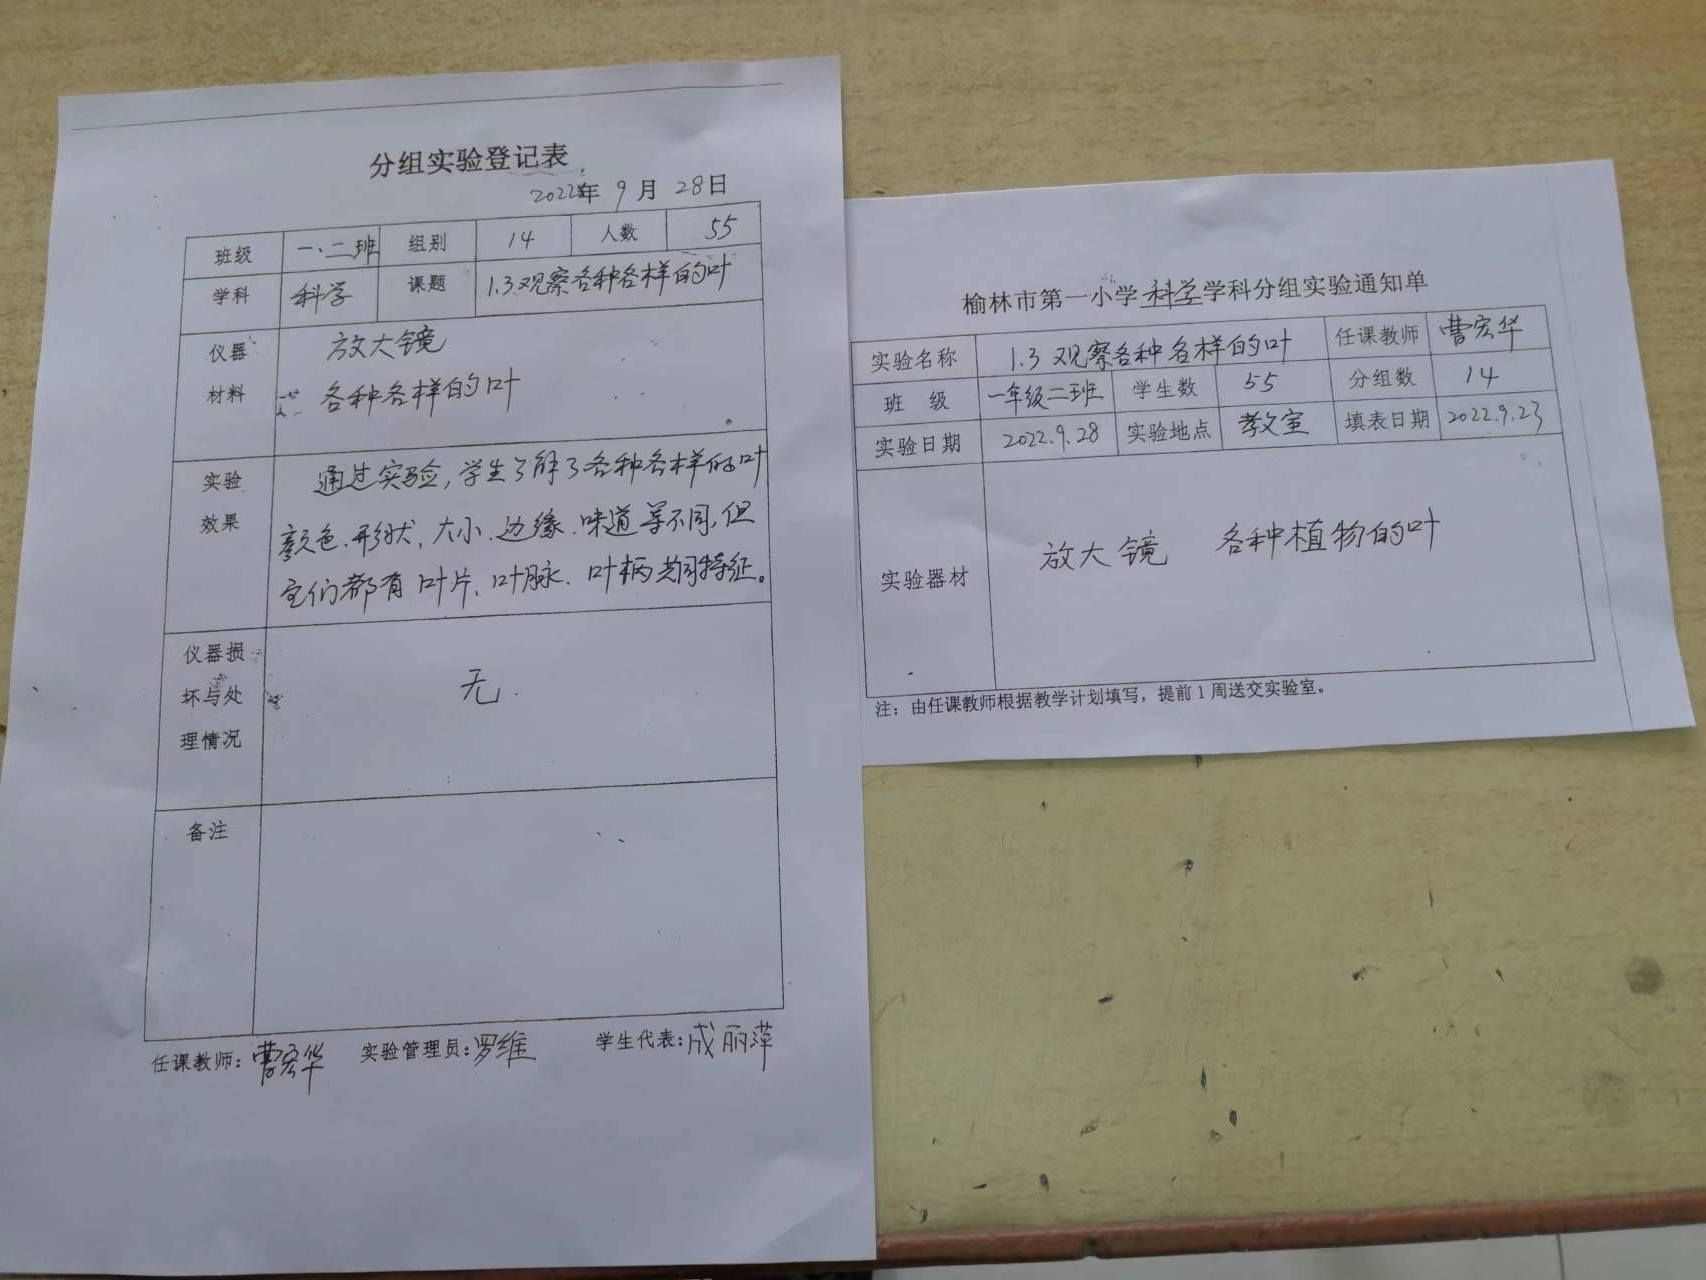 分组实验登记表
2022年 9月 28日
班级 一.二班 组别 14 人数 55
学科 科学 课题 1.3观察各种各样的叶
仪器 放大镜
材料 各种各样的叶
实验 通过实验,学生了解了各种各样的叶
效果 颜色、形状、大小、边缘、味道等不同,但
它们都有叶片、叶脉、叶柄共同特征。
仪器损
坏与处 无.
理情况
备注
任课教师:曹宏华 实验管理员:罗维 学生代表:成丽萍
榆林市第一小学科学学科分组实验通知单
实验名称 1.3 观察各种各样的叶 任课教师 曹宏华
班级 一年级二班 学生数 55 分组数 14
实验日期 2022.9.28 实验地点 教室 填表日期 2022.9.23
实验器材 放大镜 各种植物的叶
注:由任课教师根据教学计划填写,提前1周送交实验室。